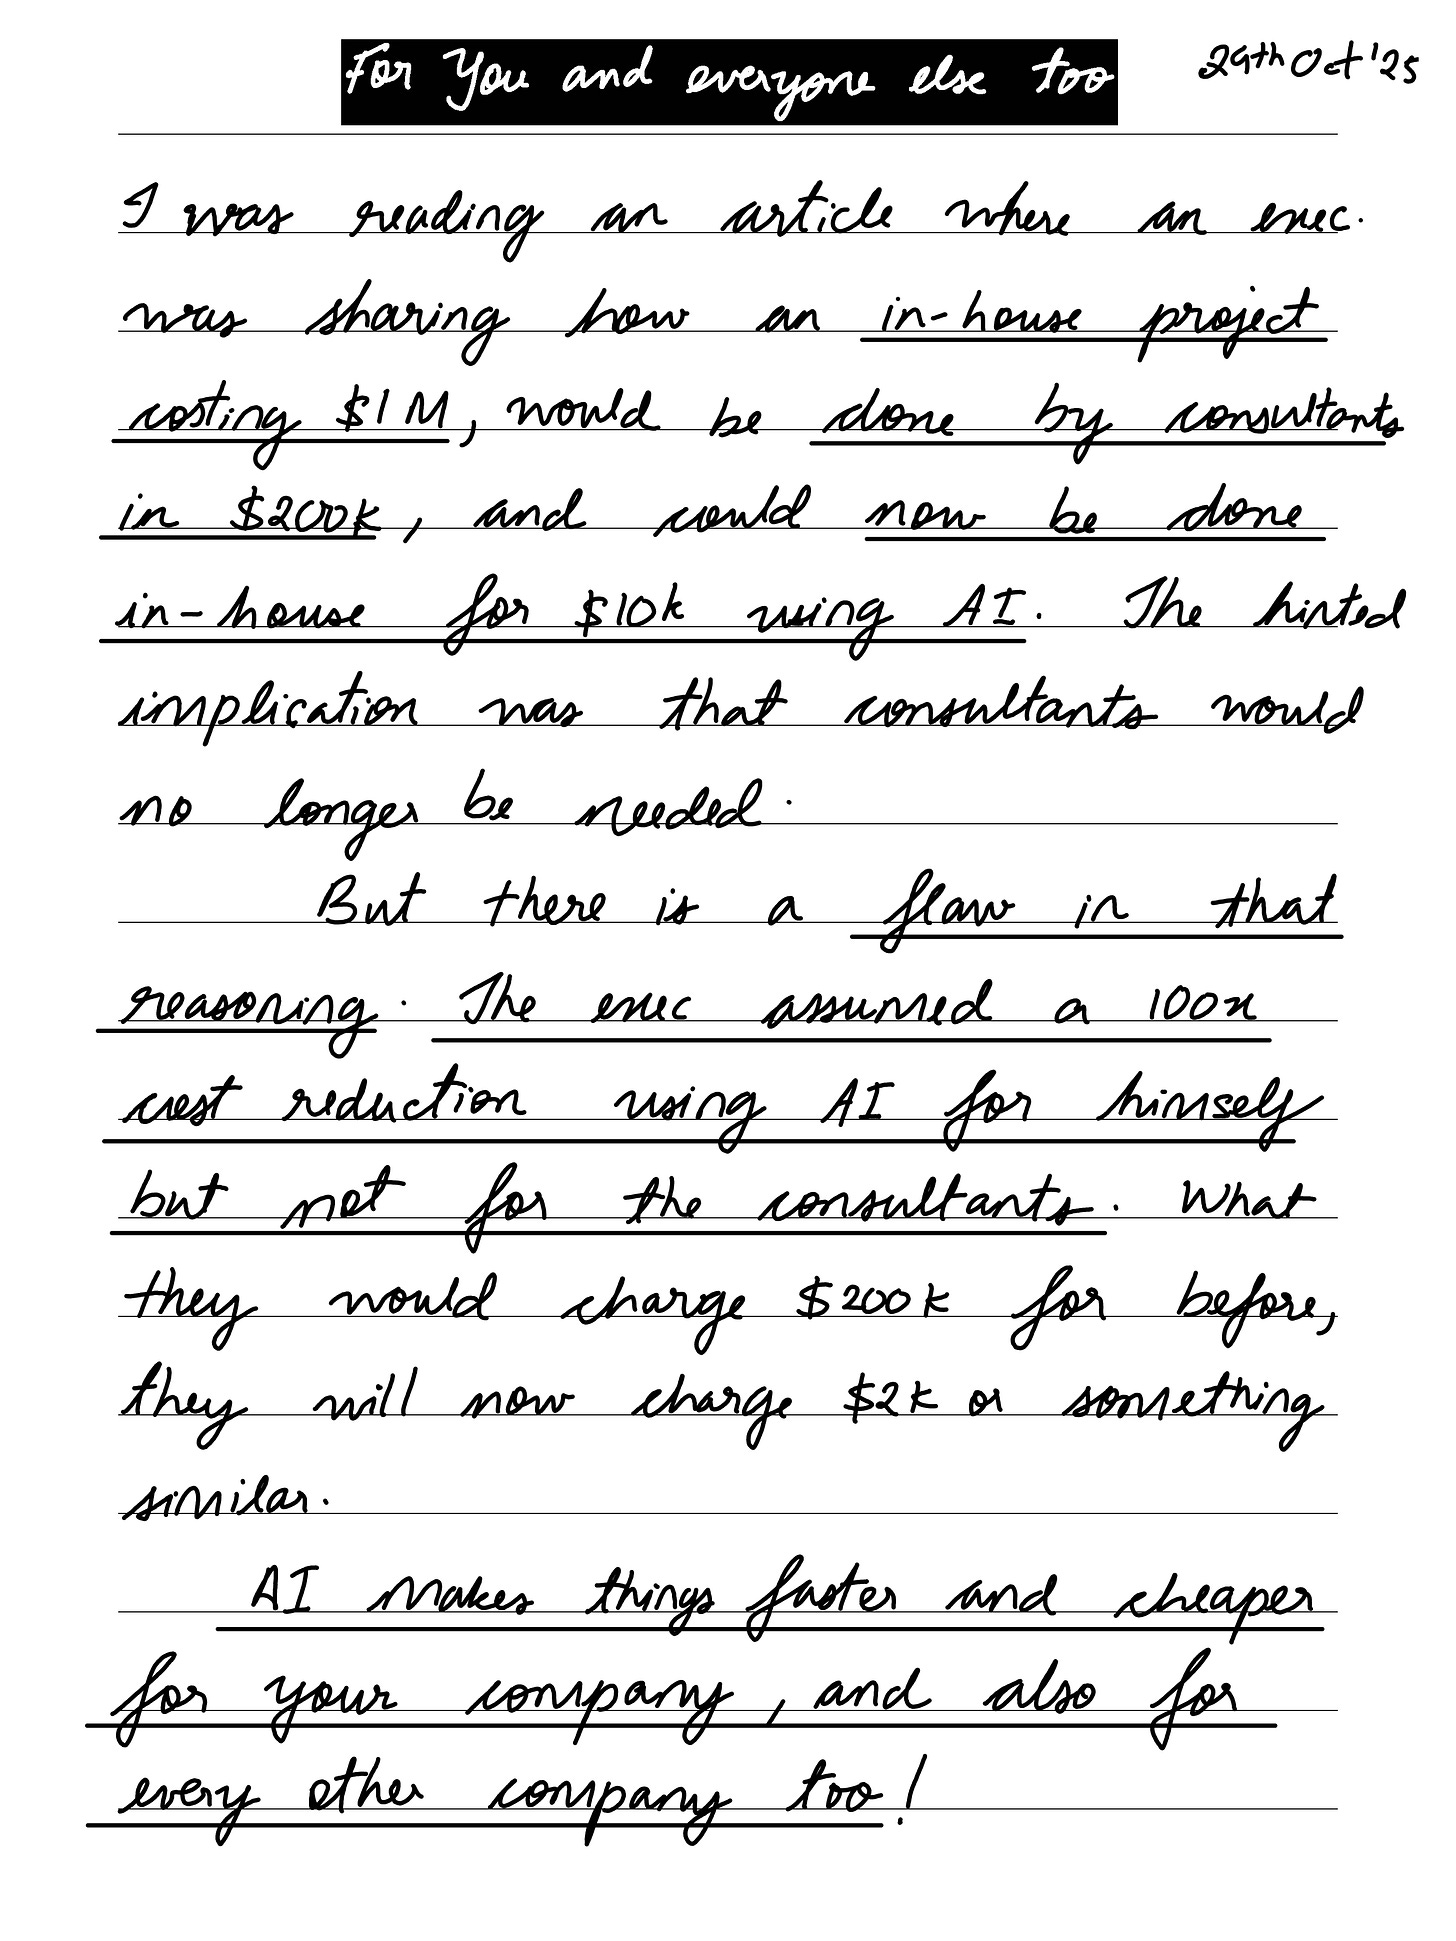 For You and everyone else too
29th Oct '25
I was reading an article where an exec.
was sharing how an in-house project
costing $1M, would be done by consultants
in $200k, and could now be done
in-house for $10k using AI. The hinted
implication was that consultants would
no longer be needed.
But there is a flaw in that
reasoning. The exec assumed a 100x
cost reduction using AI for himself
but not for the consultants. What
they would charge $200k for before,
they will now charge $2k or something
similar.
AI makes things faster and cheaper
for your company, and also for
every other company too!